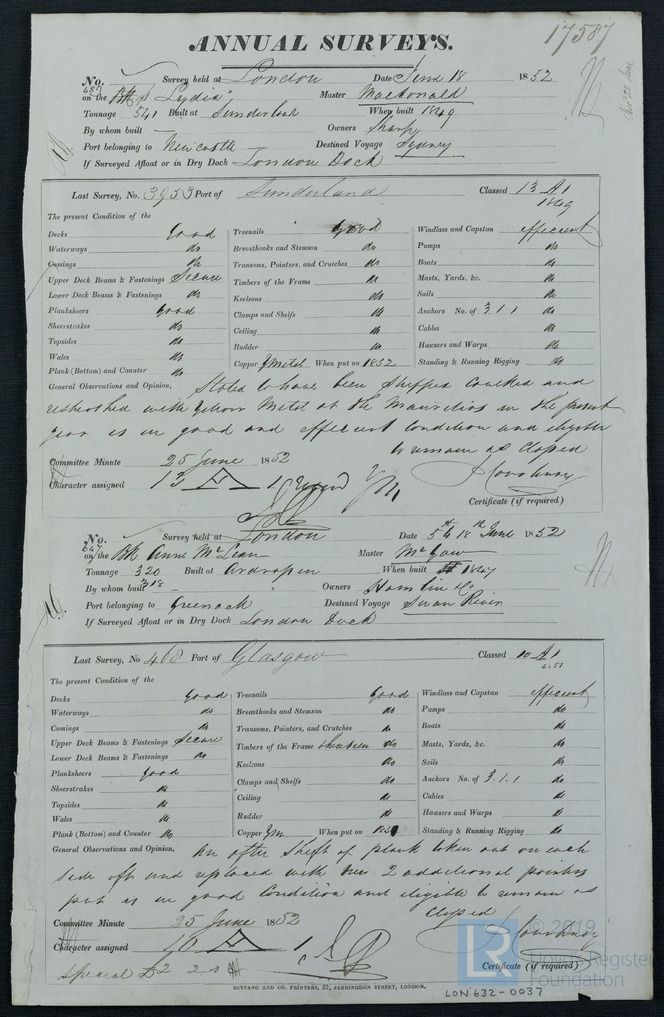 17587
ANNUAL SURVEYS.
No. 487 Survey held at London Date June 18 1852
on the "Lydia" Master Macdonald
Tonnage 541 Built at Sunderland When built 1849
By whom built — Owners Sharp
Port belonging to Newcastle Destined Voyage Sydney
If Surveyed Afloat or in Dry Dock London Dock
Last Survey, No. 3953 Port of Sunderland Classed 13 A 1
1849
The present Condition of the
Decks Good Treenails Good Windlass and Capstan efficient
Waterways do Breasthooks and Stemson do Pumps do
Comings do Transoms, Pointers, and Crutches do Boats do
Upper Deck Beams & Fastenings Secure Timbers of the Frame do Masts, Yards, &c. do
Lower Deck Beams & Fastenings do Keelsons do Sails do
Planksheers good Clamps and Shelfs do Anchors No. of 3.1.1 do
Sheerstrakes do Ceiling do Cables do
Topsides do Rudder do Hawsers and Warps do
Wales do Copper Y Metal When put on 1852 Standing & Running Rigging do
Plank (Bottom) and Counter do
General Observations and Opinion, Stated to have been stripped caulked and
resheathed with Yellow Metal at the Mauritius in the present
year is in good and efficient condition and eligible
to remain as Classed
Committee Minute 25 June 1852
Character assigned 13 A 1 YM
Certificate (if required)
No. 647 Survey held at London Date 5th to 18th June 1852
on the Bk Anne McLean Master McGow
Tonnage 320 Built at Ardrossan When built 1847
318
By whom built — Owners Hamlin & Co
Port belonging to Greenock Destined Voyage Swan River
If Surveyed Afloat or in Dry Dock London Dock
Last Survey, No 408 Port of Glasgow Classed 10 A 1
4.51
The present Condition of the
Decks Good Treenails Good Windlass and Capstan efficient
Waterways do Breasthooks and Stemson do Pumps do
Comings do Transoms, Pointers, and Crutches do Boats do
Upper Deck Beams & Fastenings Secure Timbers of the Frame do Masts, Yards, &c. do
Lower Deck Beams & Fastenings do Keelsons do Sails do
Planksheers good Clamps and Shelfs do Anchors No. of 3.1.1 do
Sheerstrakes do Ceiling do Cables do
Topsides do Rudder do Hawsers and Warps do
Wales do Copper YM When put on Standing & Running Rigging do
Plank (Bottom) and Counter do
General Observations and Opinion, An after Shift of plank taken out on each
side aft and replaced with new 2 additional pointers
put is in good Condition and eligible to remain as
Classed
Committee Minute 25 June 1852
Character assigned 10 A 1
Certificate (if required)
Special £2
SEYFANG AND CO. PRINTERS, 57, FARRINGDON STREET, LONDON.
LON632-0037
LR © 2019
Lloyd's Register
Foundation